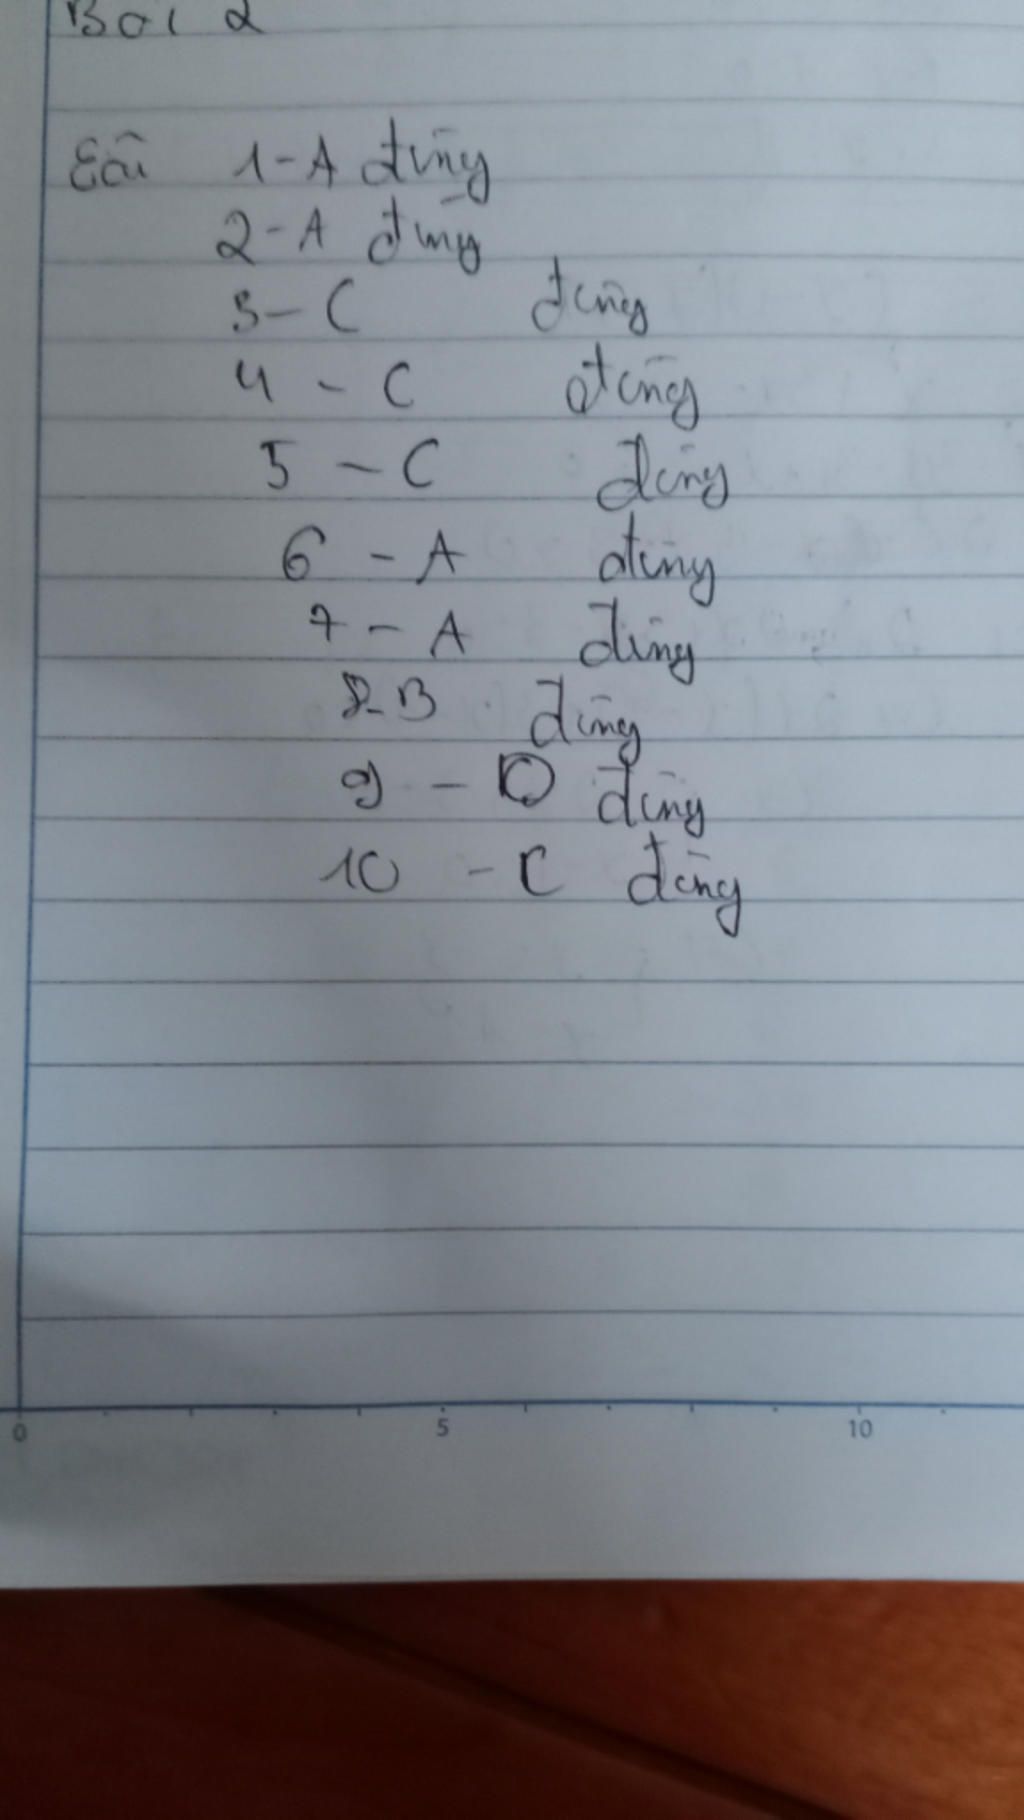 Bài 2
Câu 1-A đúng
2-A đúng
3-C đúng
4-C đúng
5-C đúng
6-A đúng
7-A đúng
8-B đúng
9- đúng
10-C đúng
0 5 10